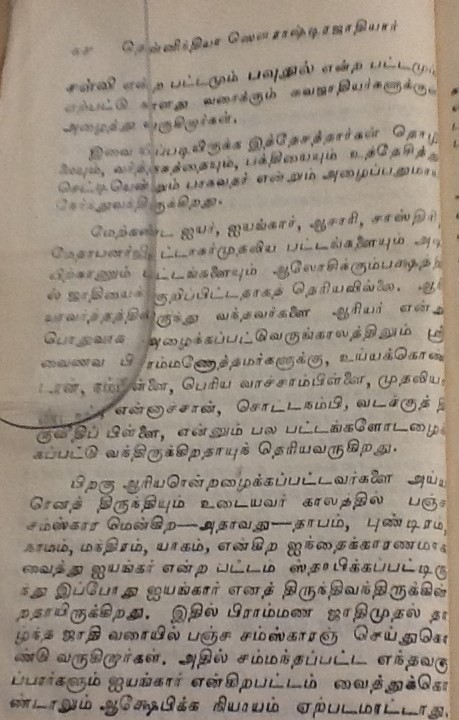 ௬௪ தென்னிந்தியா ஸௌராஷ்டிரஜாதியார்
சன்வி என்ற பட்டமும் பவுதுல் என்ற பட்டமும்
ஏற்பட்டு வரைக்கும் சுவஜாதியர்களுக்குள்
அழைத்து வருகிறார்கள்.
இவை யிப்படியிருக்க இத்தேசத்தார்கள் தொழி
லையும், வர்த்தகத்தையும், பக்தியையும் உத்தேசித்து
செட்டியென்றும் பாகவதர் என்றும் அழைப்பதுமாய்
நேர்ந்துவந்திருக்கிறது.
மேற்கண்ட ஐயர், ஐயங்கார், ஆசாரி, சாஸ்திரி,
முதலிய பட்டங்களையும் அடி
யிற்காணும் பட்டங்களையும் ஆலோசிக்கும்பக்ஷத்தி
ல் ஜாதியைக் குறிப்பிட்டதாகத் தெரியவில்லை. ஆரி
யாவர்த்தத்திலிருந்து வந்தவர்களை ஆரியர் என்று
பொதுவாக அழைக்கப்பட்டுவருங்காலத்திலும் ஸ்ரீ
வைணவ பிராம்மணோத்தமர்களுக்கு, உய்யக்கொண்
டான், நம்பிள்ளை, பெரிய வாச்சாம்பிள்ளை, முதலியா
என்னாச்சான், சொட்டநம்பி, வடக்குத் தி
குவீதிப் பிள்ளை, என்னும் பல பட்டங்களோடழைக்
கப்பட்டு வந்திருக்கிறதாயுந் தெரியவருகிறது.
பிறகு ஆரியரென்றழைக்கப்பட்டவர்களை அய்ய
ரெனத் திருந்தியும் உடையவர் காலத்தில் பஞ்ச
சம்ஸ்கார மென்கிற—அதாவது—தாபம், புண்டிரம்,
நாமம், மந்திரம், யாகம், என்கிற ஐந்தைக்காரணமாக
வைத்து ஐயங்கர் என்ற பட்டம் ஸ்தாபிக்கப்பட்டிரு
ந்து இப்போது ஐயங்கார் எனத் திருந்திவந்திருக்கின்
றதாயிருக்கிறது. இதில் பிராம்மண ஜாதிமுதல் தா
ழ்ந்த ஜாதி வரையில் பஞ்ச சம்ஸ்காரஞ் செய்துகொ
ண்டு வருகிறார்கள். அதில் சம்மந்தப்பட்ட எந்தவகு
ப்பார்களும் ஐயங்கார் என்கிறபட்டம் வைத்துக்கொ
ண்டாலும் ஆக்ஷேபிக்க நியாயம் ஏற்படமாட்டாது.